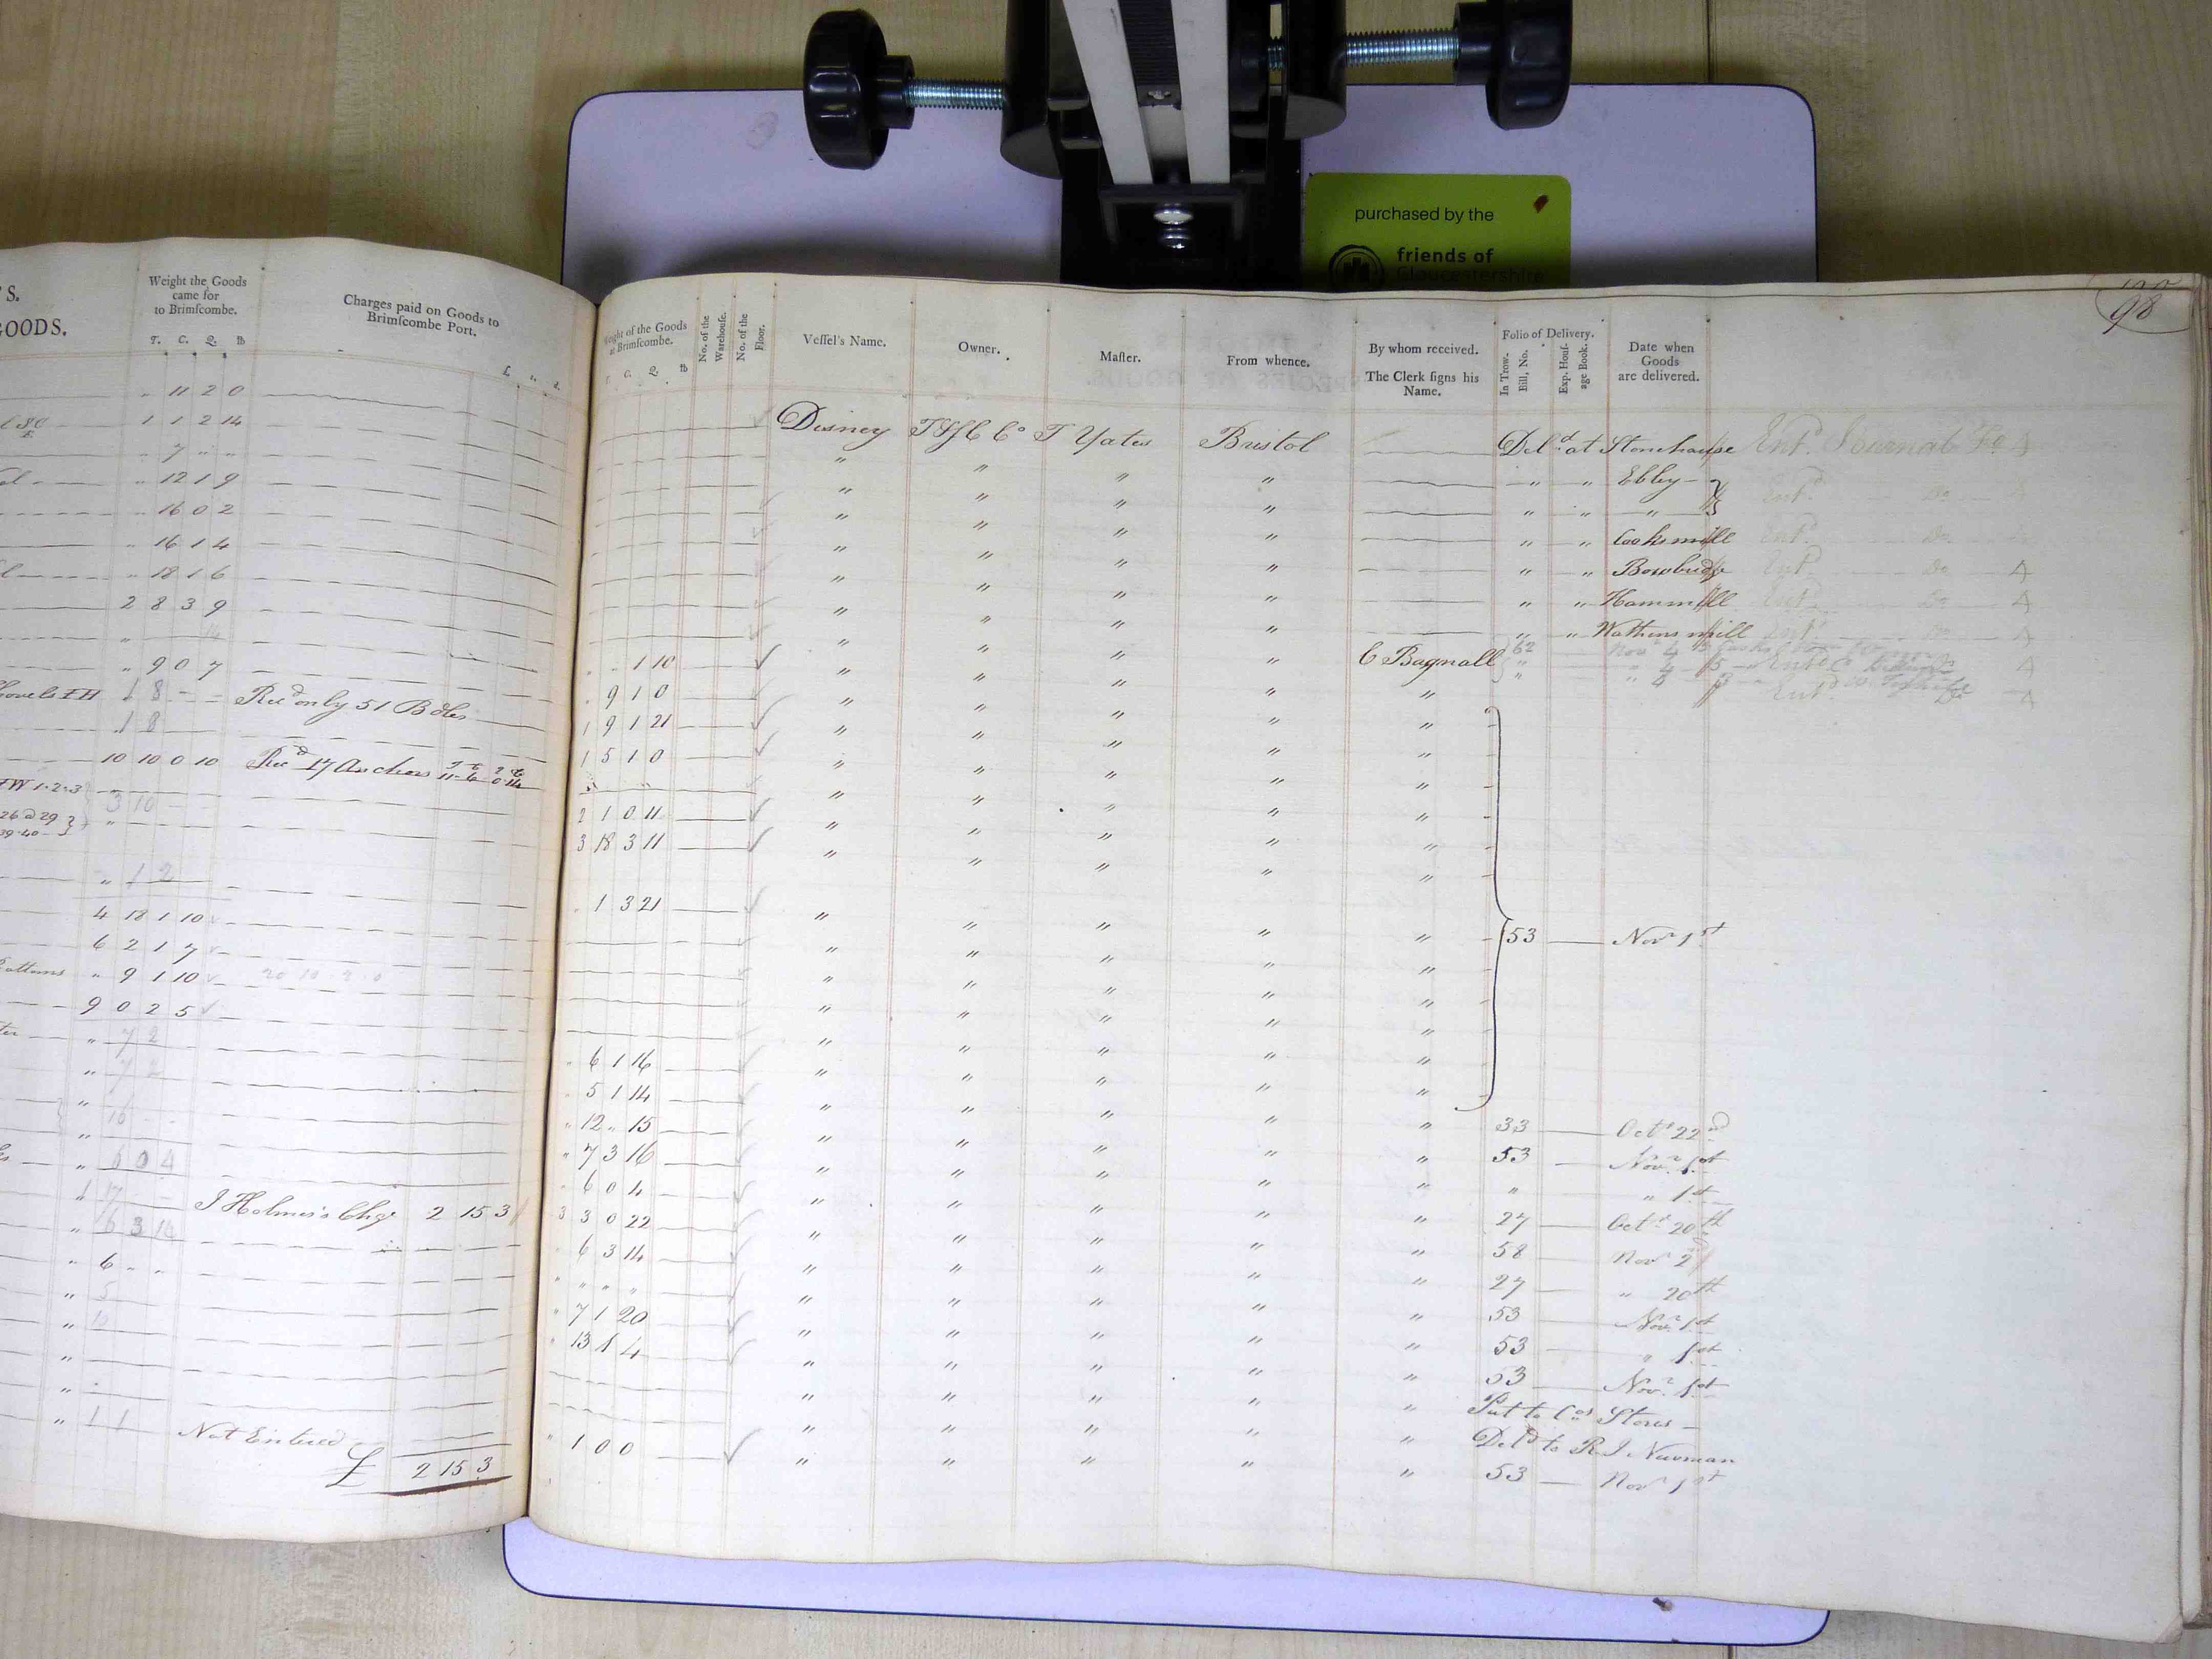 purchased by the
friends of
Gloucestershire
98
'S.
GOODS.
Weight the Goods
came for
to Brimſcombe.
T. C. Q. lb
Charges paid on Goods to
Brimſcombe Port.
" 11 2 0
1 1 2 14
" 7 " "
" 12 1 9
" 16 0 2
" 16 1 4
" 18 1 6
2 8 3 9
" 14
" 9 0 7
Shovels IH 1 8 - - Recd only 51 Bdls
1 8
10 10 0 10 Recd 17 Anchors 11 " 6 " 0 " 14
TW 1.2.3
3 10
26 @ 29
39.40
" 1 2
4 18 1 10
6 2 1 7
" 9 1 10 20 10 2 0
9 0 2 5
" 7 2
" 7 2
" 16
"
" 6 0 4
1 17 - - J Holmes's Chgs 2 15 3
" 6 3 14
" 6 " "
" 5
" 10
"
"
" 1 1 Not Entered
£ 2 15 3
Weight of the Goods
at Brimſcombe.
T. C. Q. lb
No. of the
Warehouſe.
No. of the
Floor.
Veſſel's Name.
Owner.
Maſter.
From whence.
By whom received.
The Clerk ſigns his
Name.
Folio of Delivery.
In Trow.
Bill, No.
Exp. Houſ-
age Book.
Date when
Goods
are delivered.
Disney T&SC Co T Yates Bristol Deld at Stonehouse Entd Journal Fo 4
" " " " " " Ebley Entd Do
" " " " " " "
" " " " " " Cooksmill Entd Do
" " " " " " Bowbridge Entd Do 4
" " " " " " Hammill Entd Do 4
" " " " " " Wathens mill Entd Do 4
" " 1 10 " " " " C Bagnall 62 Novr 4
" 9 1 0 " " " " "
1 9 1 21 " " " " "
1 5 1 0 " " " " "
" " " " "
2 1 0 11 " " " " "
3 18 3 11 " " " " "
" 1 3 21 " " " " " 53 Novr 1st
" " " " "
" " " " "
" " " " "
" 6 1 16 " " " " "
" 5 1 14 " " " " "
" 12 " 15 " " " " " 33 Octr 22nd
" 7 3 16 " " " " " 53 Novr 1st
" 6 0 4 " " " " " " " 1st
3 3 0 22 " " " " " 27 Octr 20th
" 6 3 14 " " " " " 58 Novr 2d
" " " " " " " " " 27 " 20th
" 7 1 20 " " " " " 53 Novr 1st
" 13 1 4 " " " " " 53 " 1st
" " " " " 53 Novr 1st
" " " " " Put to Cos Stores
" " " " " Deld to R J Newman
" 1 0 0 " " " " " 53 Novr 1st